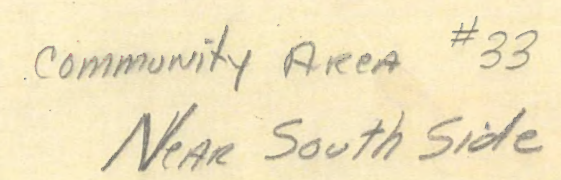 Community Area #33
Near South Side